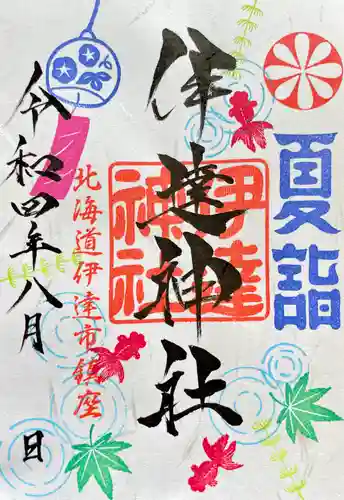 夏詣
伊達神社
伊達
神社
北海道伊達市鎮座
令和四年八月 日